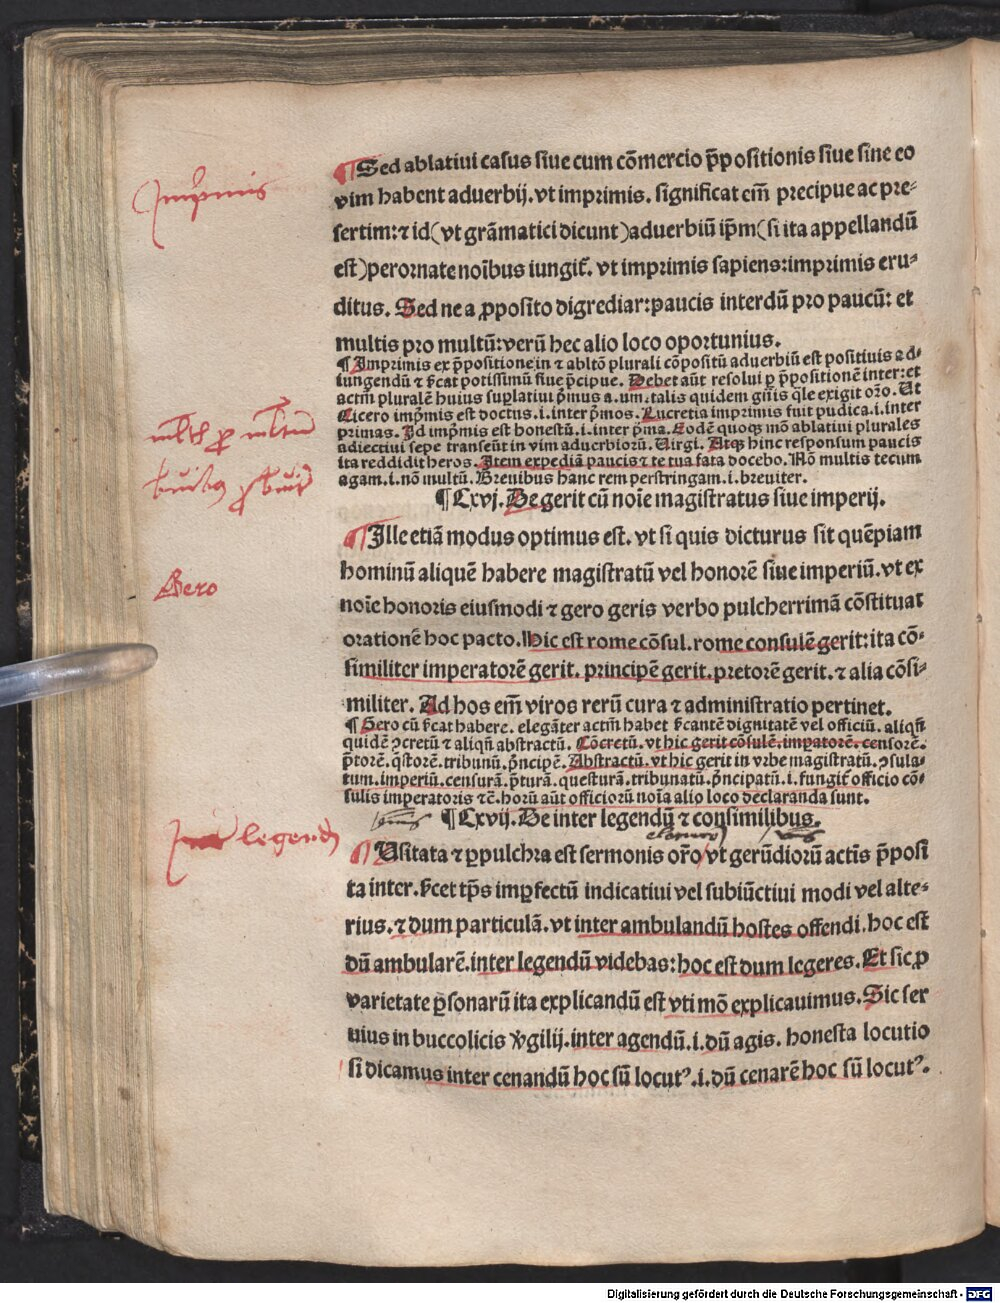 ¶ Sed ablatiui casus siue cum cōmercio p̄positionis siue sine eo
vim habent aduerbij. vt imprimis. significat em̄ precipue ac pre-
sertim: ⁊ id (vt grāmatici dicunt) aduerbiū ip̄m (si ita appellandū
est) perornate noībus iungit᷑. vt imprimis sapiens: imprimis eru-
ditus. Sed ne a ꝓposito digrediar: paucis interdū pro paucū: et
multis pro multū: verū hec alio loco oportunius.
¶ Imprimis ex p̄positione in ⁊ abltō plurali cōpositū aduerbiū est positiuis ad-
iungendū ⁊ s̄cat potissimū siue p̄cipue. Debet aūt resolui ꝑ p̄positionē inter: et
actm̄ pluralē huius suplatiui p̄mus a. um. talis quidem gn̄is q̄le exigit or̄o. Ut
Cicero imp̄mis est doctus. i. inter p̄mos. Lucretia imprimis fuit pudica. i. inter
primas. Id imp̄mis est honestū. i. inter p̄ma. Eodē quoqꝫ mō ablatiui plurales
adiectiui sepe transeūt in vim aduerbiorū. Uirgi. Atqꝫ hinc responsum paucis
ita reddidit heros. Item expediā paucis ⁊ te tua fata docebo. Nō multis tecum
agam. i. nō multū. Breuibus hanc rem perstringam. i. breuiter.
¶ Cxvj. De gerit cū noīe magistratus siue imperij.
¶ Ille etiā modus optimus est. vt si quis dicturus sit quēpiam
hominū aliquē habere magistratū vel honorē siue imperiū. vt ex
noīe honoris eiusmodi ⁊ gero geris verbo pulcherrimā cōstituat
orationē hoc pacto. Hic est rome cōsul. rome consulē gerit: ita cō-
similiter imperatorē gerit. principē gerit. pretorē gerit. ⁊ alia cōsi-
militer. Ad hos em̄ viros rerū cura ⁊ administratio pertinet.
¶ Gero cū s̄cat habere. elegāter actm̄ habet s̄cantē dignitatē vel officiū. aliqn̄
quidē ↄcretū ⁊ aliqn̄ abstractū. Cōcretū. vt hic gerit cōsulē. imꝑatorē. censorē.
p̄torē. q̄storē. tribunū. p̄ncipē. Abstractū. vt hic gerit in vrbe magistratū. ↄsula-
tum. imperiū. censurā. p̄turā. questurā. tribunatū. p̄ncipatū. i. fungit᷑ officio cō-
sulis imperatoris ⁊c̄. horū aūt officiorū noīa alio loco declaranda sunt.
¶ Cxvij. De inter legendū ⁊ consimilibus.
¶ Usitata ⁊ ꝑpulchra est sermonis or̄o vt gerūdiorū actīs p̄posi
ta inter. s̄cet tp̄s imꝑfectū indicatiui vel subiūctiui modi vel alte-
rius. ⁊ dum particulā. vt inter ambulandū hostes offendi. hoc est
dū ambularē. inter legendū videbas: hoc est dum legeres. Et sic ꝓ
varietate ꝑsonarū ita explicandū est vti mō explicauimus. Sic ser
uius in buccolicis v̄gilij. inter agendū. i. dū agis. honesta locutio
si dicamus inter cenandū hoc sū locutꝰ. i. dū cenarē hoc sū locutꝰ.
Imp̄mis
Gero
legend
Digitalisierung gefördert durch die Deutsche Forschungsgemeinschaft - DFG